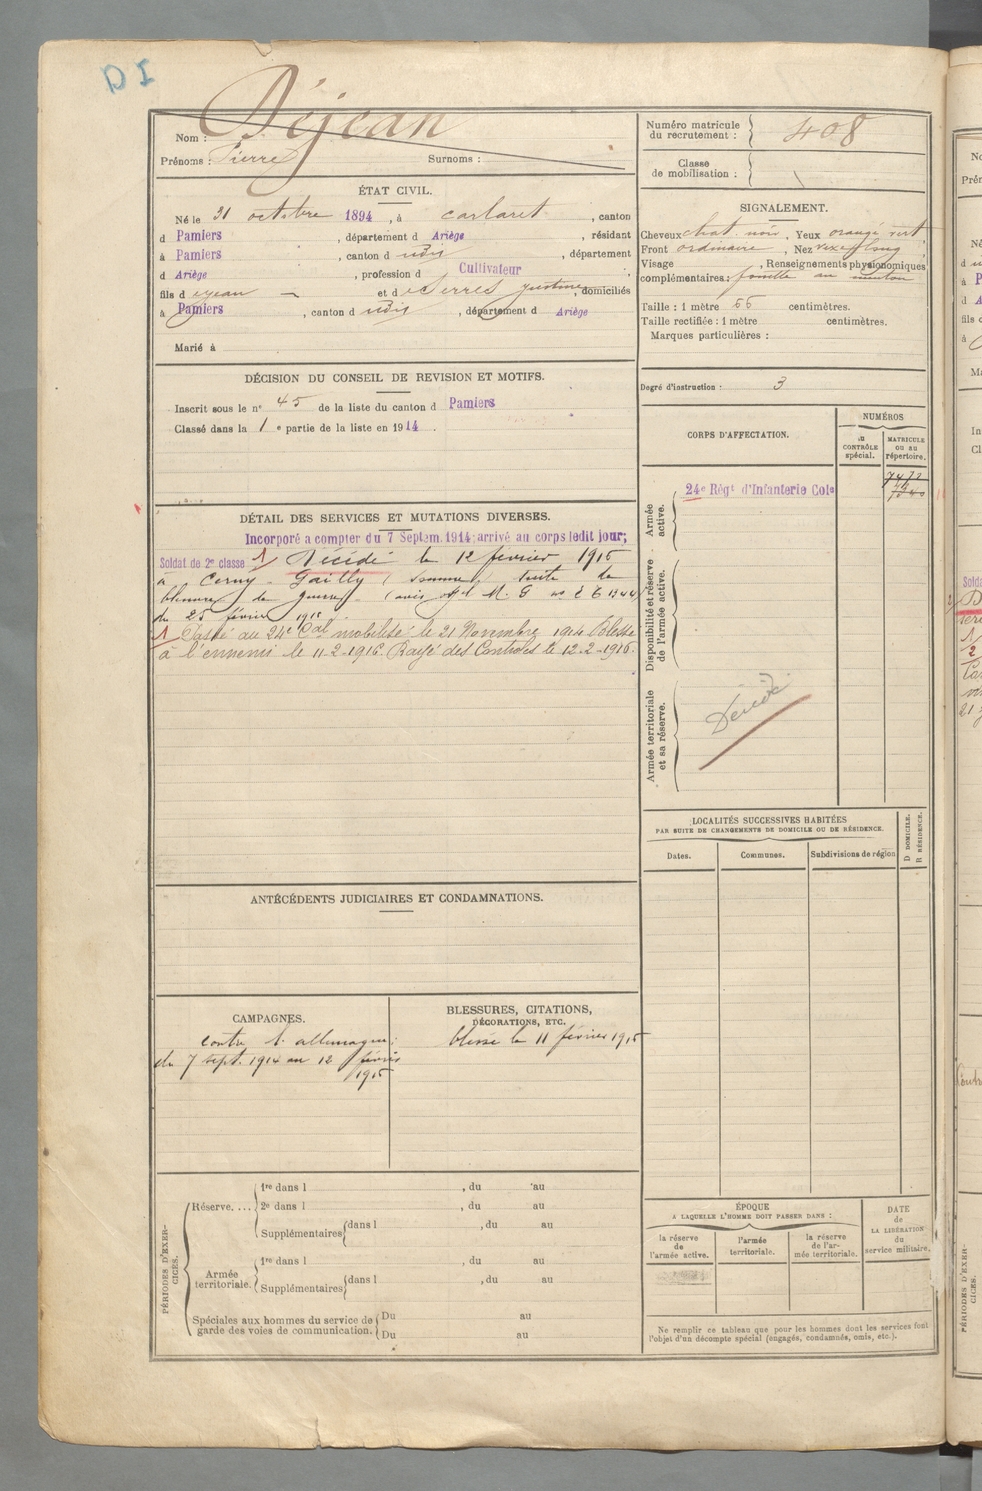 DI
Nom : Déjean
Prénoms : Pierre Surnoms :
Numéro matricule du recrutement : 408
Classe de mobilisation :
ÉTAT CIVIL.
Né le 31 octobre 1894, à Carlaret, canton
d Pamiers, département d Ariège, résidant
à Pamiers, canton d udis, département
d Ariège, profession d Cultivateur
fils d e Jean et d e Serres Justine, domiciliés
à Pamiers, canton d udis, département d Ariège
Marié à
SIGNALEMENT.
Cheveux chat. noir, Yeux orangé vert
Front ordinaire, Nez
Visage , Renseignements physionomiques
complémentaires : au menton
Taille : 1 mètre 66 centimètres.
Taille rectifiée : 1 mètre centimètres.
Marques particulières :
DÉCISION DU CONSEIL DE REVISION ET MOTIFS.
Inscrit sous le n° 45 de la liste du canton d Pamiers
Classé dans la 1e partie de la liste en 1914.
Degré d'instruction : 3
CORPS D'AFFECTATION.
NUMÉROS
au CONTRÔLE spécial.
MATRICULE ou au répertoire.
Armée active.
24e Régt d'Infanterie Colo
7472
Disponibilité et réserve de l'armée active.
Armée territoriale et sa réserve.
Décédé
DÉTAIL DES SERVICES ET MUTATIONS DIVERSES.
Incorporé à compter du 7 Septem. 1914; arrivé au corps ledit jour;
Soldat de 2e classe 1/ Décédé le 12 février 1915
à Cerny-Gailly (Somme) suite de
blessure de guerre (avis M. G
du 25 février 1915
1 Passé au 24e Cal mobilisé le 21 Novembre 1914 Blessé
à l'ennemi le 11-2-1915. Rayé des Contrôles le 12-2-1915.
LOCALITÉS SUCCESSIVES HABITÉES
PAR SUITE DE CHANGEMENTS DE DOMICILE OU DE RÉSIDENCE.
Dates. Communes. Subdivisions de région
D DOMICILE.
R RÉSIDENCE.
ANTÉCÉDENTS JUDICIAIRES ET CONDAMNATIONS.
CAMPAGNES.
contre l'allemagne :
du 7 sept. 1914 au 12 février
1915
BLESSURES, CITATIONS,
DÉCORATIONS, ETC.
blessé le 11 février 1915
PÉRIODES D'EXERCICES.
Réserve....
1re dans l , du au
2e dans l , du au
Supplémentaires dans l , du au
Armée territoriale.
1re dans l , du au
Supplémentaires dans l , du au
Spéciales aux hommes du service de
garde des voies de communication.
Du au
Du au
ÉPOQUE
A LAQUELLE L'HOMME DOIT PASSER DANS :
la réserve de l'armée active.
l'armée territoriale.
la réserve de l'armée territoriale.
DATE
de
LA LIBÉRATION
du
service militaire.
Ne remplir ce tableau que pour les hommes dont les services font
l'objet d'un décompte spécial (engagés, condamnés, omis, etc.).